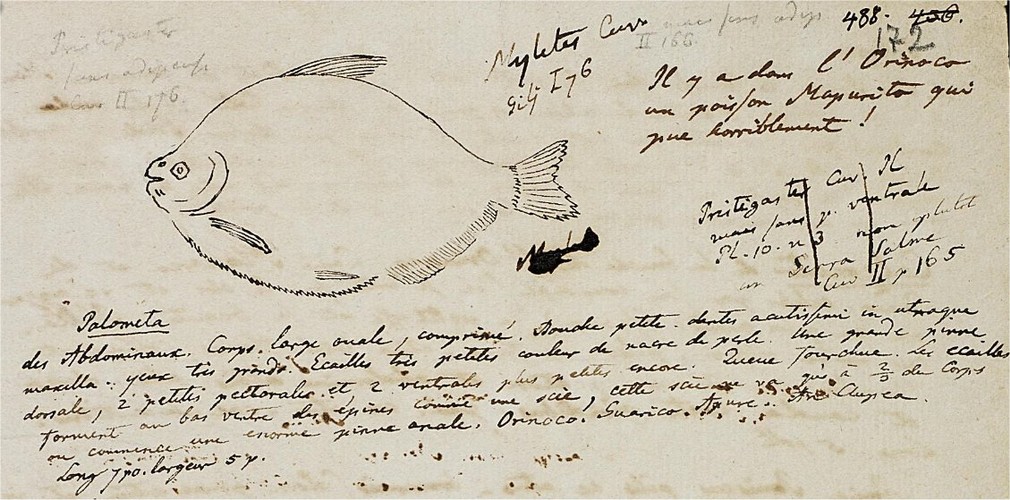 Pristigaster
sans adipeuse
Cuv II 176.
Myletes Cuv
mais sans adip.
II 166.
Gili I 76
488. 456.
172
Il y a dans l'Orinoco
un poisson Mapurito qui
pue horriblement!
Pristigaster Cuv. II
mais sans p. ventrale
Pl. 10. n 3 non plutot
un Serra Salme
Cuv II p 165
Palometa
des Abdominaux. Corps large ovale, comprimé. Bouche petite. dentes acutissimi in utraque
maxilla. yeux très grands. Ecailles très petites couleur de nacre de perle. Une grande pinne
dorsale, 2 petites pectorales et 2 ventrales plus petites encore. Queue fourchue. Les ecailles
forment au bas ventre des épines comme une scie, cette scie ne va qu'à 2/3 du corps
ou commence une enorme pinne anale. Orinoco. Guarico. Apure. An Clupea.
Long 7 po. largeur 5 p.